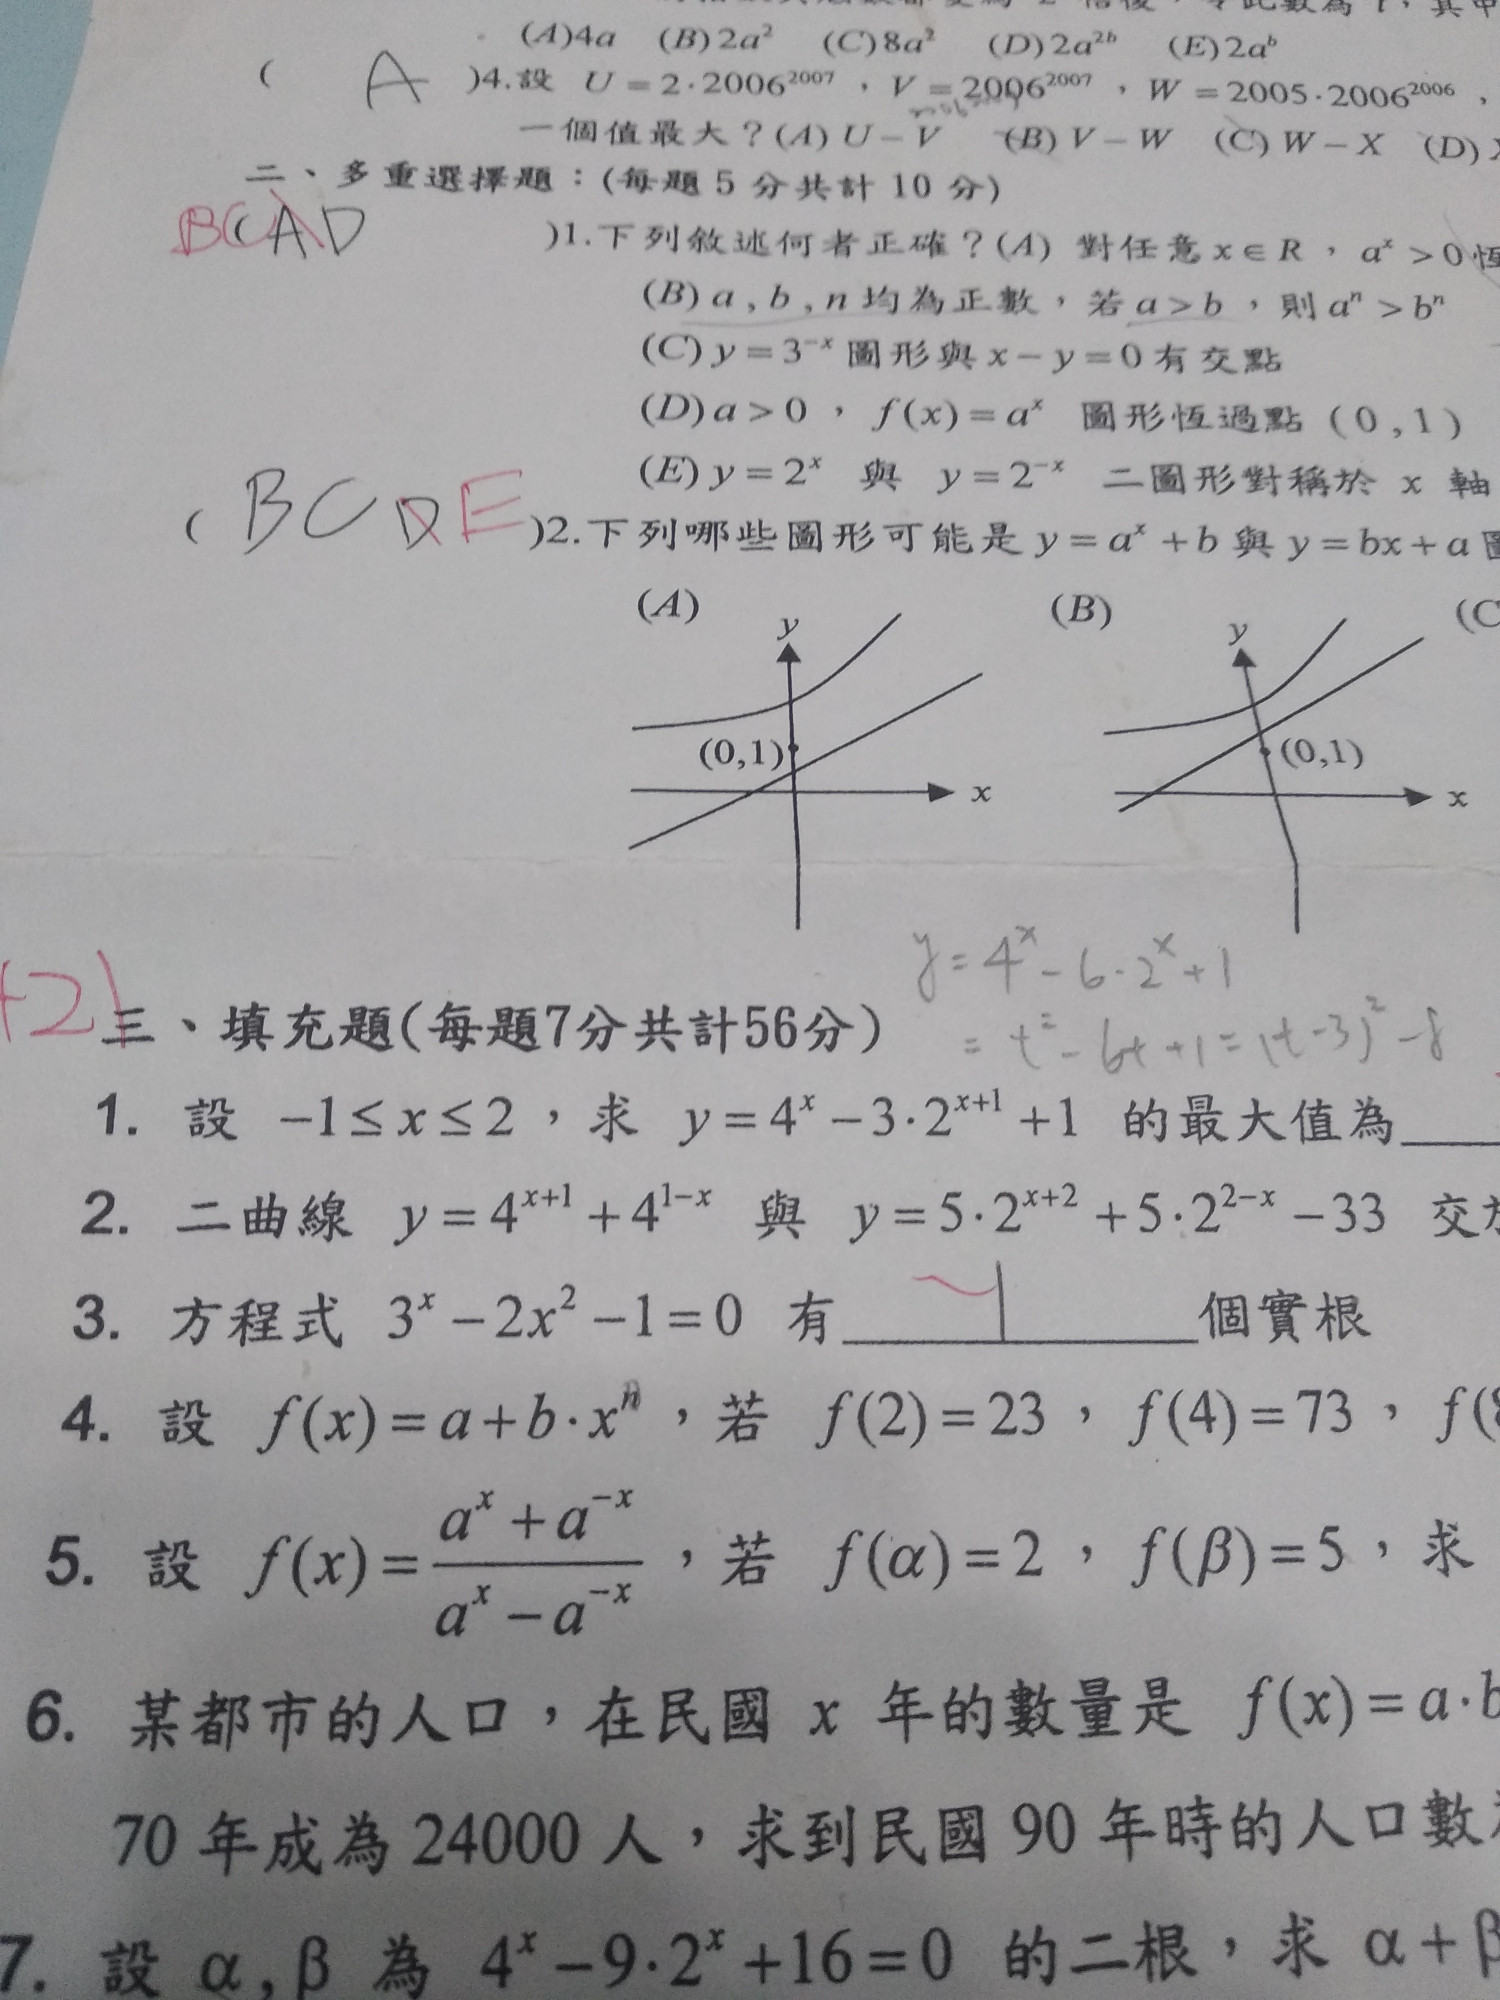 (A)4a (B)2a² (C)8a² (D)2a²ᵇ (E)2aᵇ
( A )4.設 U=2·2006²⁰⁰⁷，V=2006²⁰⁰⁷，W=2005·2006²⁰⁰⁶，
一個值最大？(A) U−V (B) V−W (C) W−X (D)
二、多重選擇題：(每題 5 分共計 10 分)
BCAD )1.下列敘述何者正確？(A) 對任意 x∈R，aˣ>0 恆
(B) a,b,n 均為正數，若 a>b，則 aⁿ>bⁿ
(C) y=3⁻ˣ 圖形與 x−y=0 有交點
(D) a>0，f(x)=aˣ 圖形恆過點 (0,1)
(E) y=2ˣ 與 y=2⁻ˣ 二圖形對稱於 x 軸
( BCDE )2.下列哪些圖形可能是 y=aˣ+b 與 y=bx+a
(A) (B) (C
y y
(0,1) (0,1)
x x
y=4ˣ-6·2ˣ+1
=t²-6t+1=(t-3)²-8
三、填充題(每題7分共計56分)
1. 設 −1≤x≤2，求 y=4ˣ−3·2ˣ⁺¹+1 的最大值為
2. 二曲線 y=4ˣ⁺¹+4¹⁻ˣ 與 y=5·2ˣ⁺²+5·2²⁻ˣ−33 交
3. 方程式 3ˣ−2x²−1=0 有 1 個實根
4. 設 f(x)=a+b·xⁿ，若 f(2)=23，f(4)=73，f(8
5. 設 f(x)=(aˣ+a⁻ˣ)/(aˣ−a⁻ˣ)，若 f(α)=2，f(β)=5，求
6. 某都市的人口，在民國 x 年的數量是 f(x)=a·b
70 年成為 24000 人，求到民國 90 年時的人口數
7. 設 α,β 為 4ˣ−9·2ˣ+16=0 的二根，求 α+β